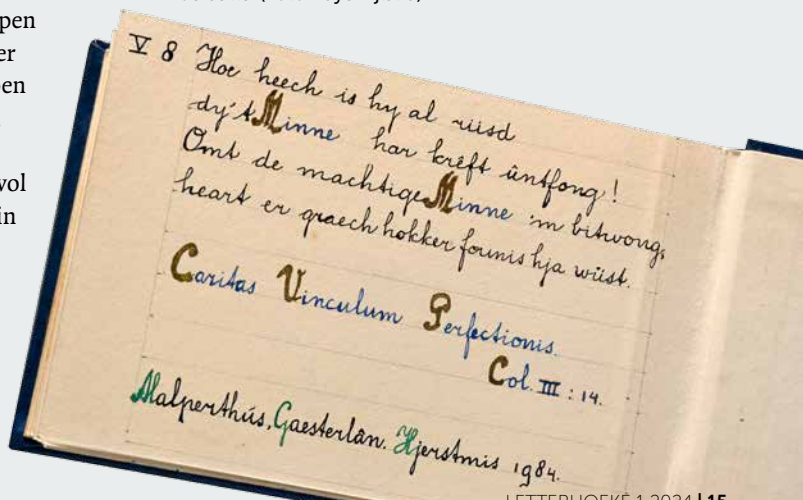 pen
er
en
vol
in
V 8 Hoe heech is hy al riisd
dy't Minne har krêft ûntfong!
Omt de machtige Minne 'm bitwong,
heart er graech hokker founis hja wiist.
Caritas Vinculum Perfectionis.
Col. III : 14.
Malperthús, Gaesterlân. Hjerstmis 1984.
LETTERHOEKE 1.2024 | 15